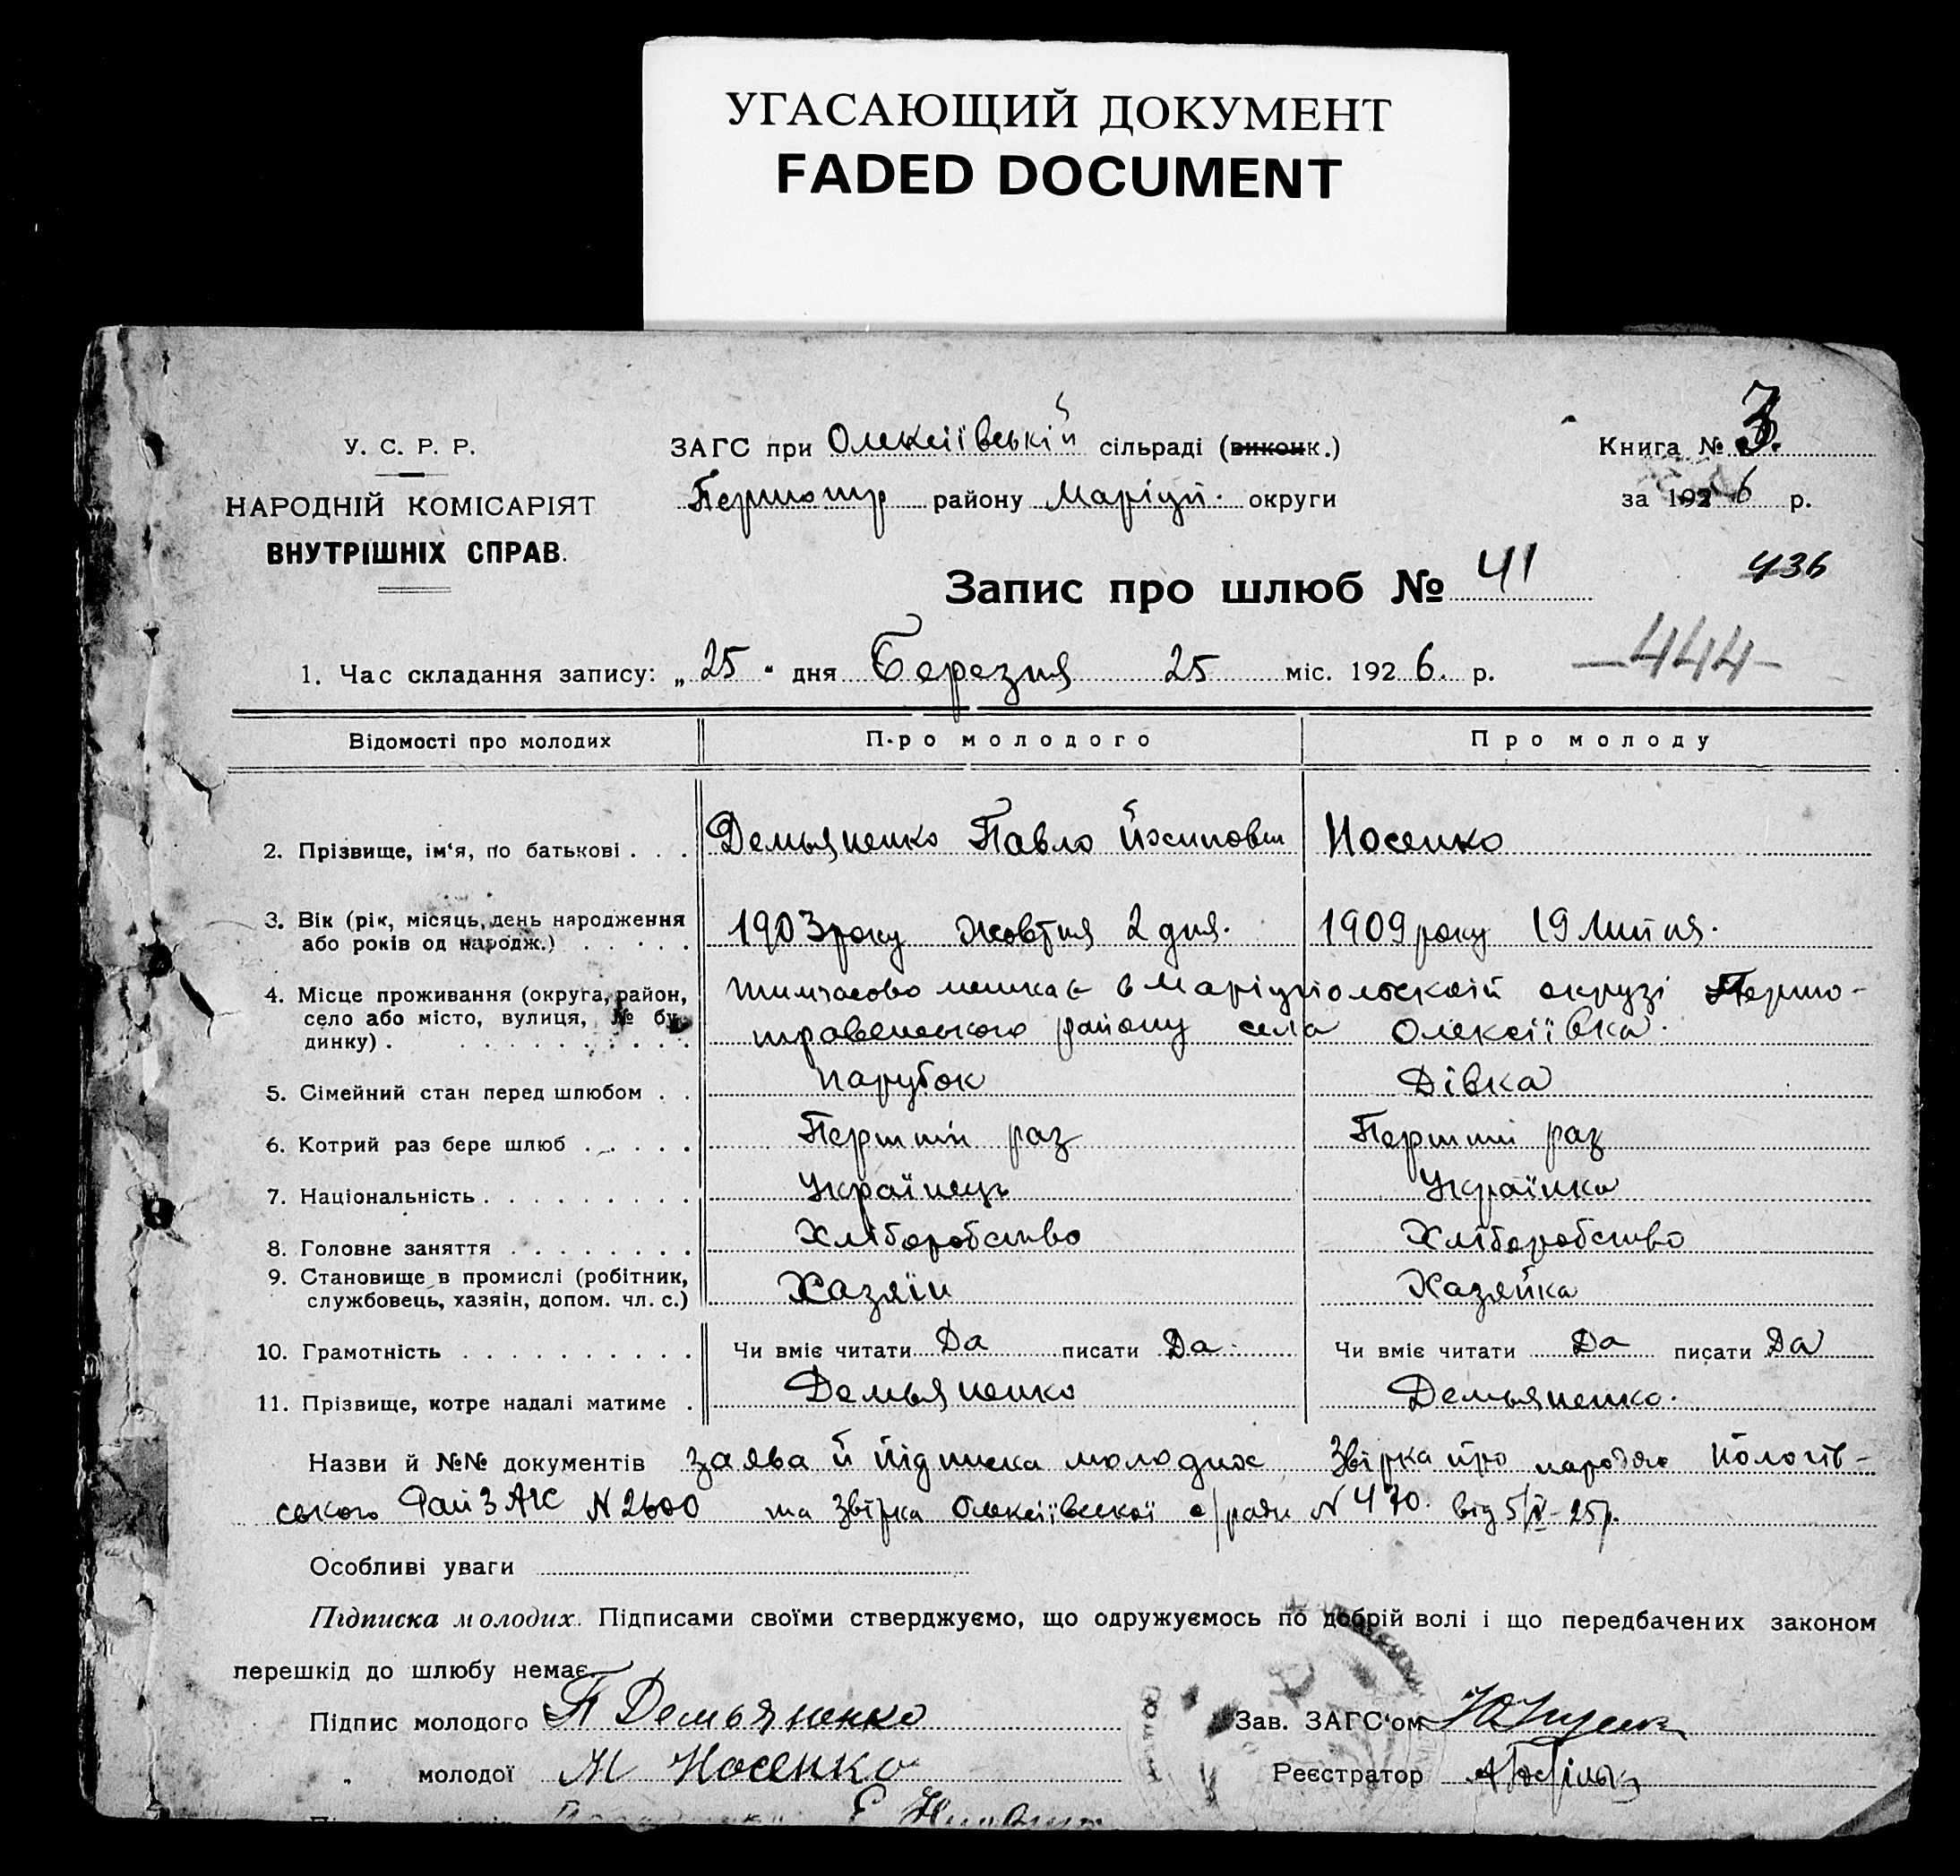 УГАСАЮЩИЙ ДОКУМЕНТ
FADED DOCUMENT
У. С. Р. Р.
НАРОДНІЙ КОМІСАРІЯТ
ВНУТРІШНІХ СПРАВ.
ЗАГС при Олексіївській сільраді (виконк.)
Першотр району Маріуп. округи
Книга № 3.
за 1926 р.
Запис про шлюб № 41
436
1. Час складання запису: „25“ дня Березня 25 міс. 1926. р.
—444—
Відомості про молодих Про молодого Про молоду
2. Прізвище, ім‘я, по батькові . . . Демьяненко Павло Йосипович Носенко
3. Вік (рік, місяць, день народження 1903 року Жовтня 2 дня. 1909 року 19 Липня.
або років од народж.) . . . . .
4. Місце проживання (округа, район, тимчасово мешкає в Маріупіольскій окрузі Першо-
село або місто, вулиця, № бу-
динку) . . . . . . . . . . . травенського району села Олексіївка.
5. Сімейний стан перед шлюбом . . парубок Дівка
6. Котрий раз бере шлюб . . . . . Перший раз Перший раз
7. Національність . . . . . . . . . Українець Українка
8. Головне заняття . . . . . . . . Хліборобство Хліборобство
9. Становище в промислі (робітник,
службовець, хазяін, допом. чл. с.) Хазяїн Хазяйка
10. Грамотність . . . . . . . . . . Чи вміє читати Да писати Да. Чи вміє читати Да писати Да
11. Прізвище, котре надалі матиме . Демьяненко Демьяненко.
Назви й №№ документів Заява й підписка молодих Звірка про народже Пологів-
ського РайЗАГС N 2600 та Звірка Олексіївської с/ради N 470. від 5/IV-25р.
Особливі уваги
Підписка молодих. Підписами своїми стверджуємо, що одружуємось по добрій волі і що передбачених законом
перешкід до шлюбу немає.
Підпис молодого П Демьяненко Зав. ЗАГС‘ом
„ молодої М Носенко Реєстратор